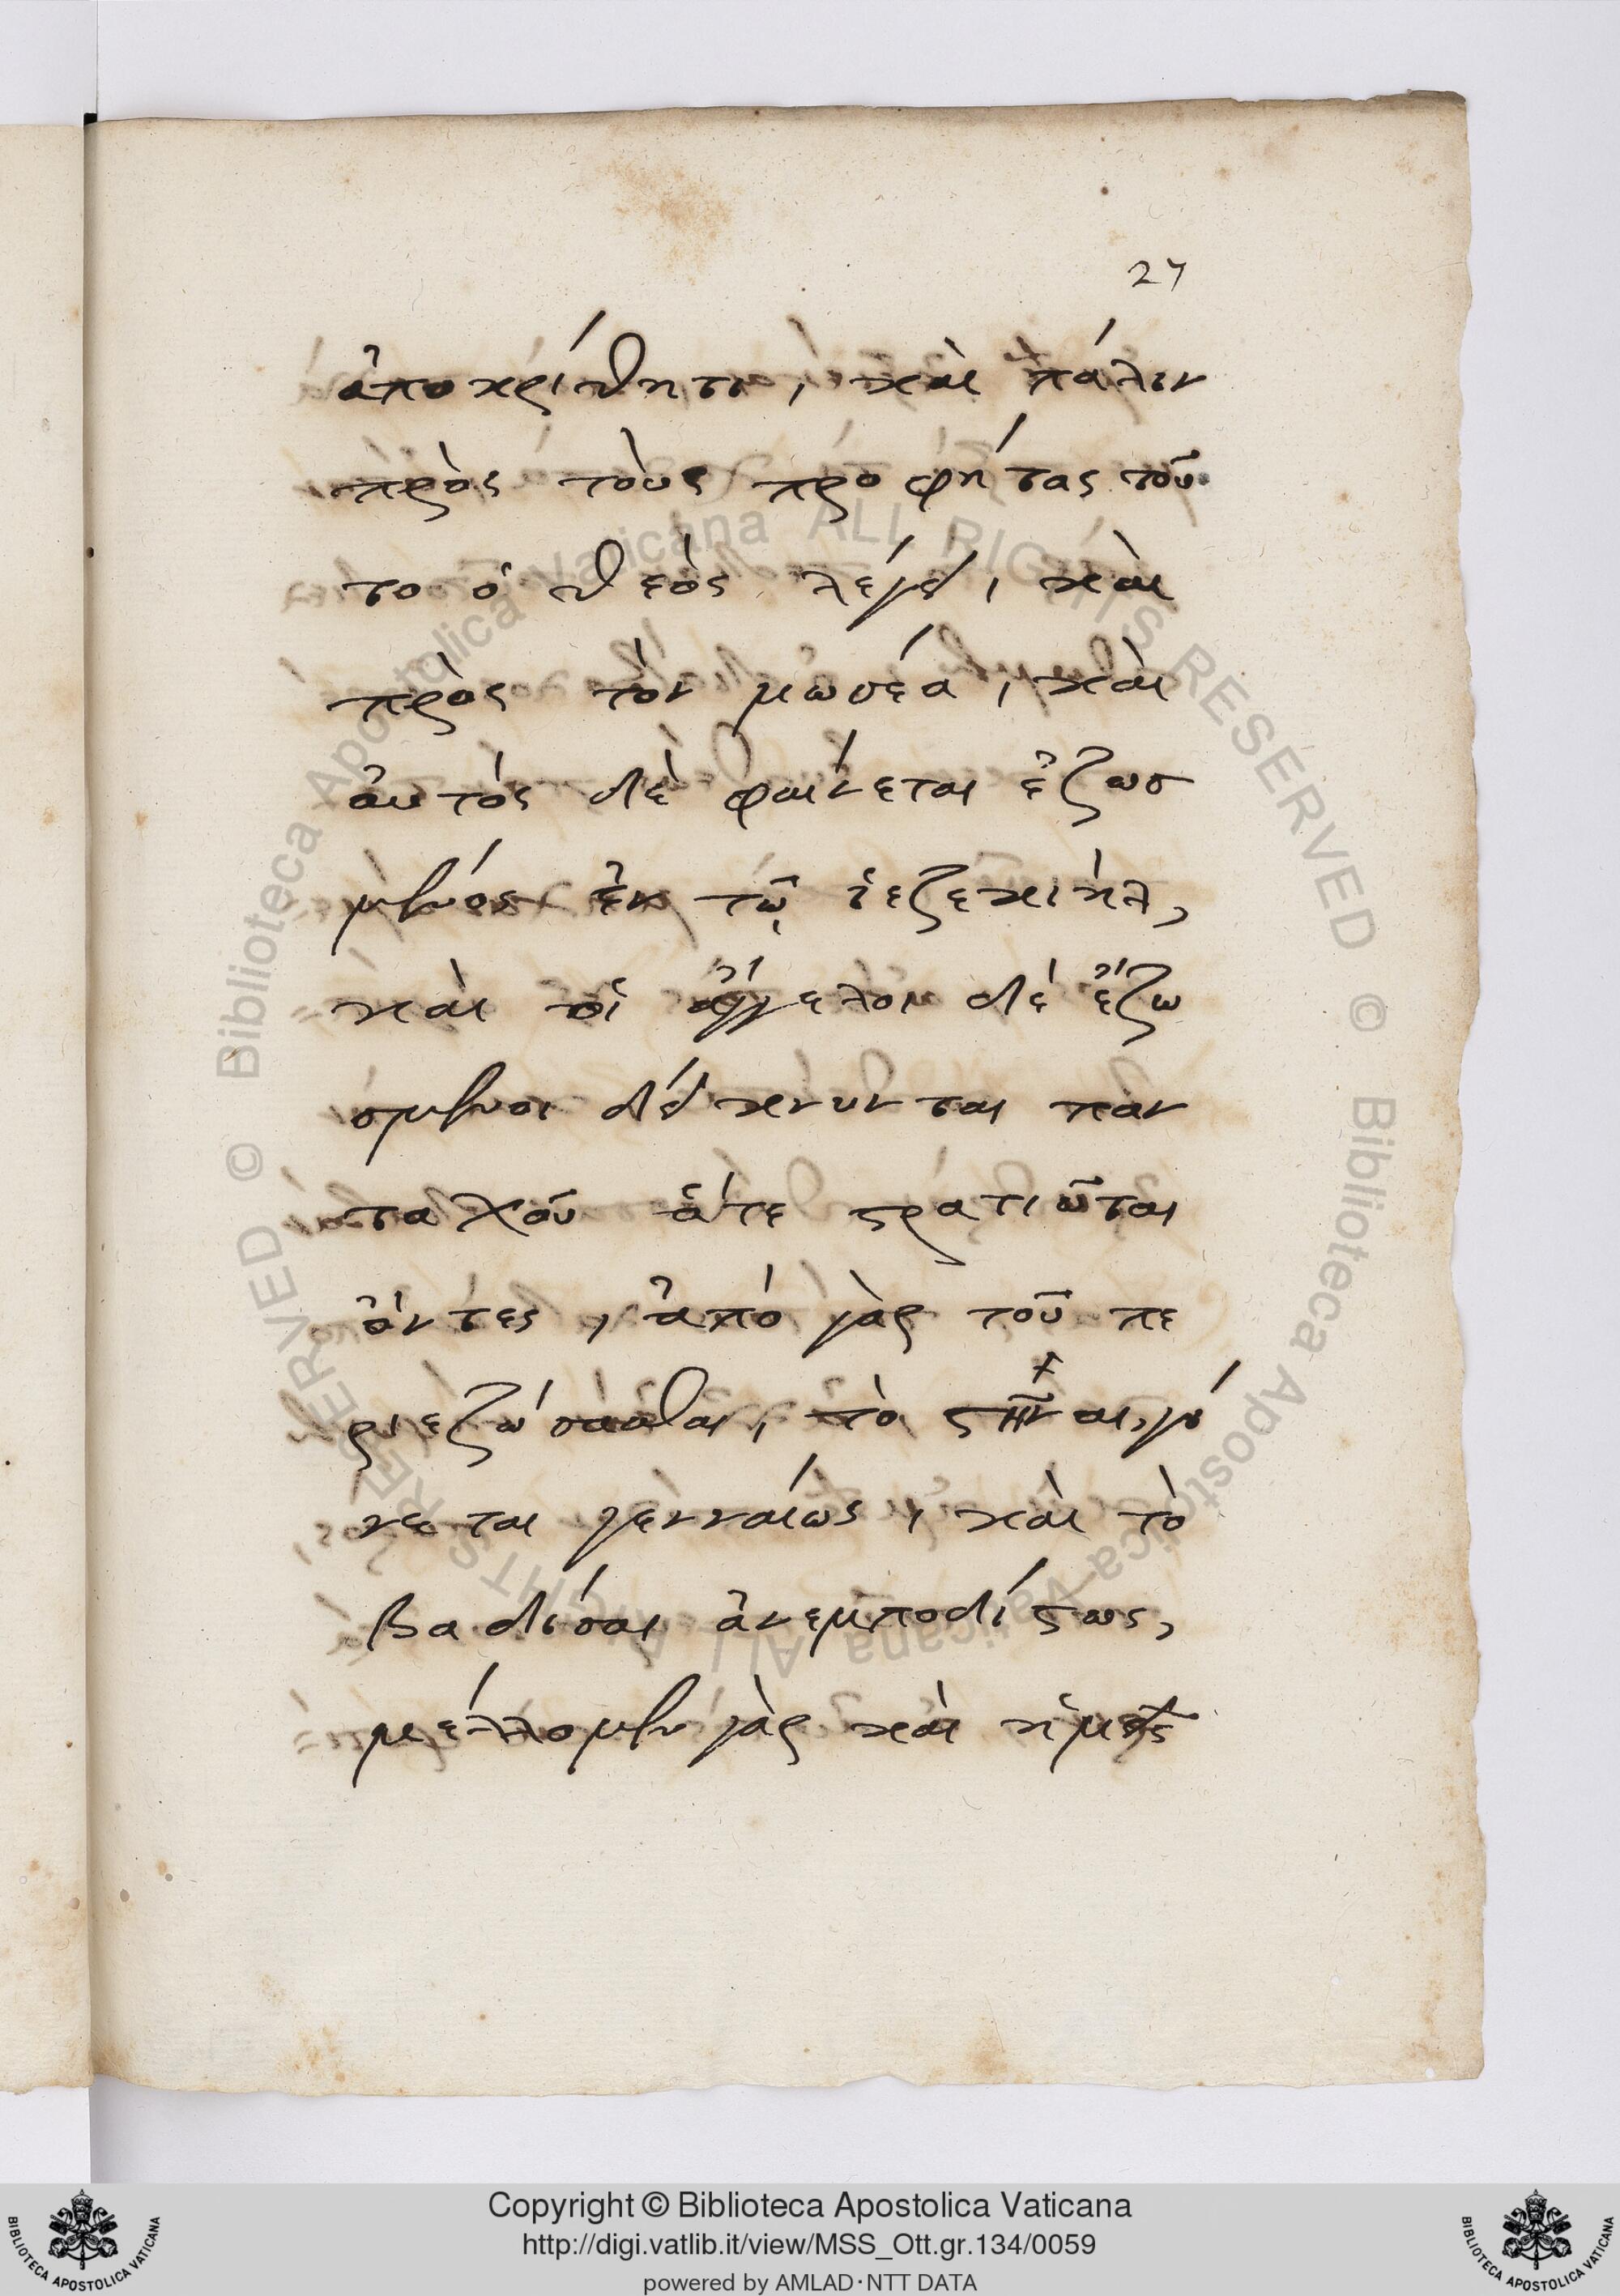 27
ἀποκρίθητι, καὶ πάλιν
πρὸς τοὺς προφήτας τοῦ
το ὁ θεὸς λέγει, καὶ
πρὸς τὸν μωσέα, καὶ
αὐτὸς δὲ φαίνεται ἐζωσ
μένος ἐν τῷ ἰεζεκιὴλ,
καὶ οἱ ἄγγελοι δὲ ἐζω
σμένοι δείκνυνται παν
ταχοῦ ἅτε στρατιῶται
ὄντες, ἀπὸ γὰρ τοῦ πε
ριεζώσασθαι, τὸ στῆναι, γί
νεται γενναίως, καὶ τὸ
βαδίσαι ἀνεμποδίστως,
μέλλομεν γὰρ καὶ ἡμεῖς
© Biblioteca Apostolica Vaticana ALL RIGHTS RESERVED
© Biblioteca Apostolica Vaticana ALL RIGHTS RESERVED
Copyright © Biblioteca Apostolica Vaticana
http://digi.vatlib.it/view/MSS_Ott.gr.134/0059
powered by AMLAD·NTT DATA
BIBLIOTECA APOSTOLICA VATICANA
BIBLIOTECA APOSTOLICA VATICANA